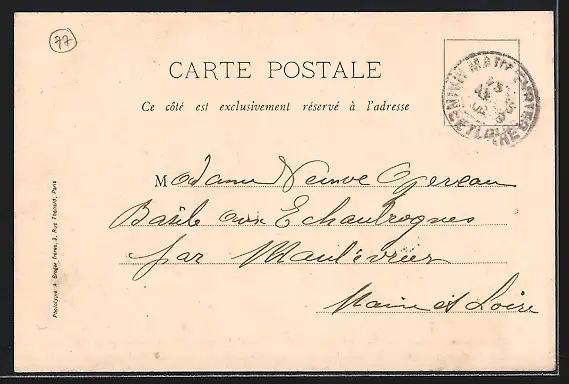 77
CARTE POSTALE
Ce côté est exclusivement réservé à l'adresse
Madame Veuve Gereau
Basile aux Echaubrognes
par Maulévrier
Maine et Loire
Phototypie A. Breger Frères, 9, Rue Thénard, Paris